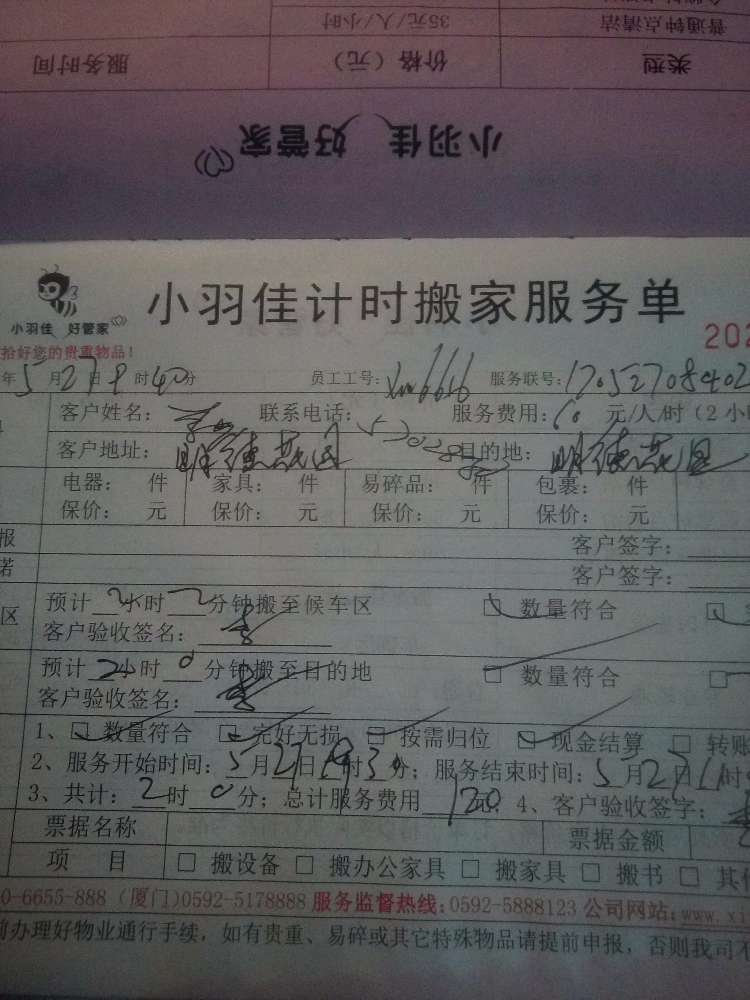 普通钟点清洁 35元/人/小时
类型 价格（元） 服务时间
小羽佳 好管家
小羽佳计时搬家服务单
小羽佳 好管家
拾好您的贵重物品！
202
年5月27日 时40分 员工工号： 服务联号：17052708402
客户姓名： 联系电话： 服务费用：60元/人/时（2小
客户地址：明德花园 目的地：明德花园
电器： 件 家具： 件 易碎品： 件 包裹： 件
保价： 元 保价： 元 保价： 元 保价： 元
报 客户签字：
诺 客户签字：
区 预计 2小时 分钟搬至候车区 数量符合
客户验收签名：李
预计 2小时 0分钟搬至目的地 数量符合
客户验收签名：李
1、 数量符合 完好无损 按需归位 现金结算 转账
2、服务开始时间：5月27日 9时30分；服务结束时间：5月27日11时
3、共计：2时0分；总计服务费用120元；4、客户验收签字：
票据名称 票据金额
项 目 搬设备 搬办公家具 搬家具 搬书 其他
0-6655-888（厦门）0592-5178888 服务监督热线：0592-5888123 公司网站：www.xi
前办理好物业通行手续，如有贵重、易碎或其它特殊物品请提前申报，否则我司不